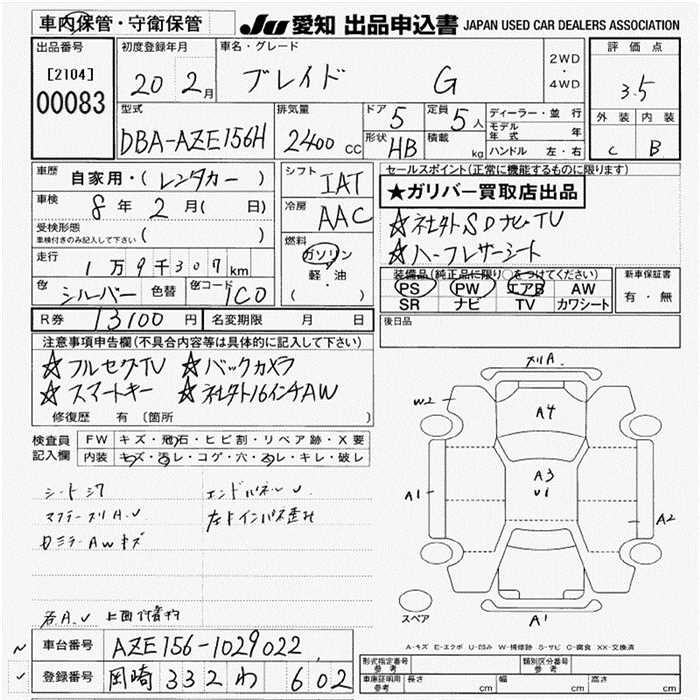 車内保管・守衛保管
JU 愛知 出品申込書 JAPAN USED CAR DEALERS ASSOCIATION
出品番号
[2104]
00083
初度登録年月
20 2月
車名・グレード
ブレイド G
2WD
・
4WD
評価点
3.5
外装 内装
C B
型式
DBA-AZE156H
排気量
2400 CC
ドア 5
形状 HB
定員 5人
積載 kg
ディーラー・並行
モデル年式 年
ハンドル 左・右
車歴 自家用・(レンタカー)
車検 8年 2月( 日)
受検形態
車検付きのみ記入して下さい ( )
走行 1万9千307km
色 シルバー 色替 色コード 1C0
シフト IAT
冷房 AAC
燃料
ガソリン
軽・油
( )
セールスポイント(正常に機能するものに限ります)
★ガリバー買取店出品
☆社外SDナビ・TV
☆ハーフレザーシート
装備品(純正品に限り○をつけてください)
PS PW エアB AW
SR ナビ TV カワシート
新車保証書
有・無
R券 13100円 名変期限 月 日
後日品
注意事項申告欄(不具合内容等は具体的に記入して下さい)
☆フルセグTV ☆バックカメラ
☆スマートキー ☆社外16インチAW
修復歴 有 〔箇所
検査員記入欄
FW キズ・飛石・ヒビ割・リペア跡・X要
内装 キズ・汚レ・コゲ・穴・スレ・キレ・破レ
シートシワ エンドパネルU
マフラースリA.U 左下インパネ歪み
ロミラーAWキズ
各A.U
スリA.
W2
A4
A3
U1
A1
A2
A1
スペア
A-キズ E-エクボ U-凹み W-補修跡 S-サビ C-腐食 XX-交換済
車台番号 AZE156-1029022
登録番号 岡崎 332 わ 602
型式指定番号
参考
類別区分番号
参考
車庫証明用
参考
長さ cm 幅 cm 高さ cm